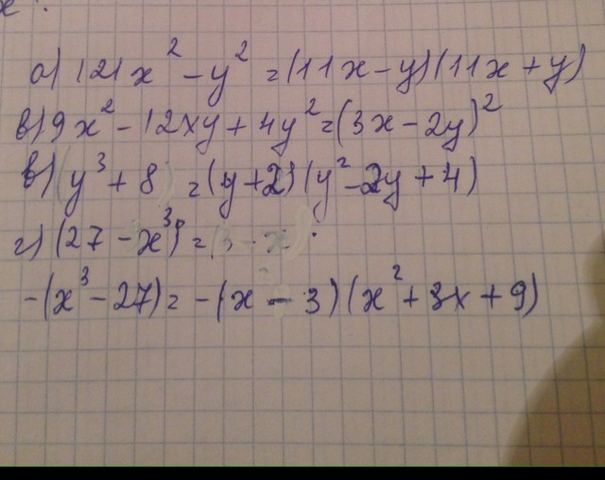 а) 121x² - y² = (11x - y)(11x + y)
в) 9x² - 12xy + 4y² = (3x - 2y)²
в) y³ + 8 = (y + 2)(y² - 2y + 4)
г) (27 - x³) =
-(x³ - 27) = -(x - 3)(x² + 3x + 9)